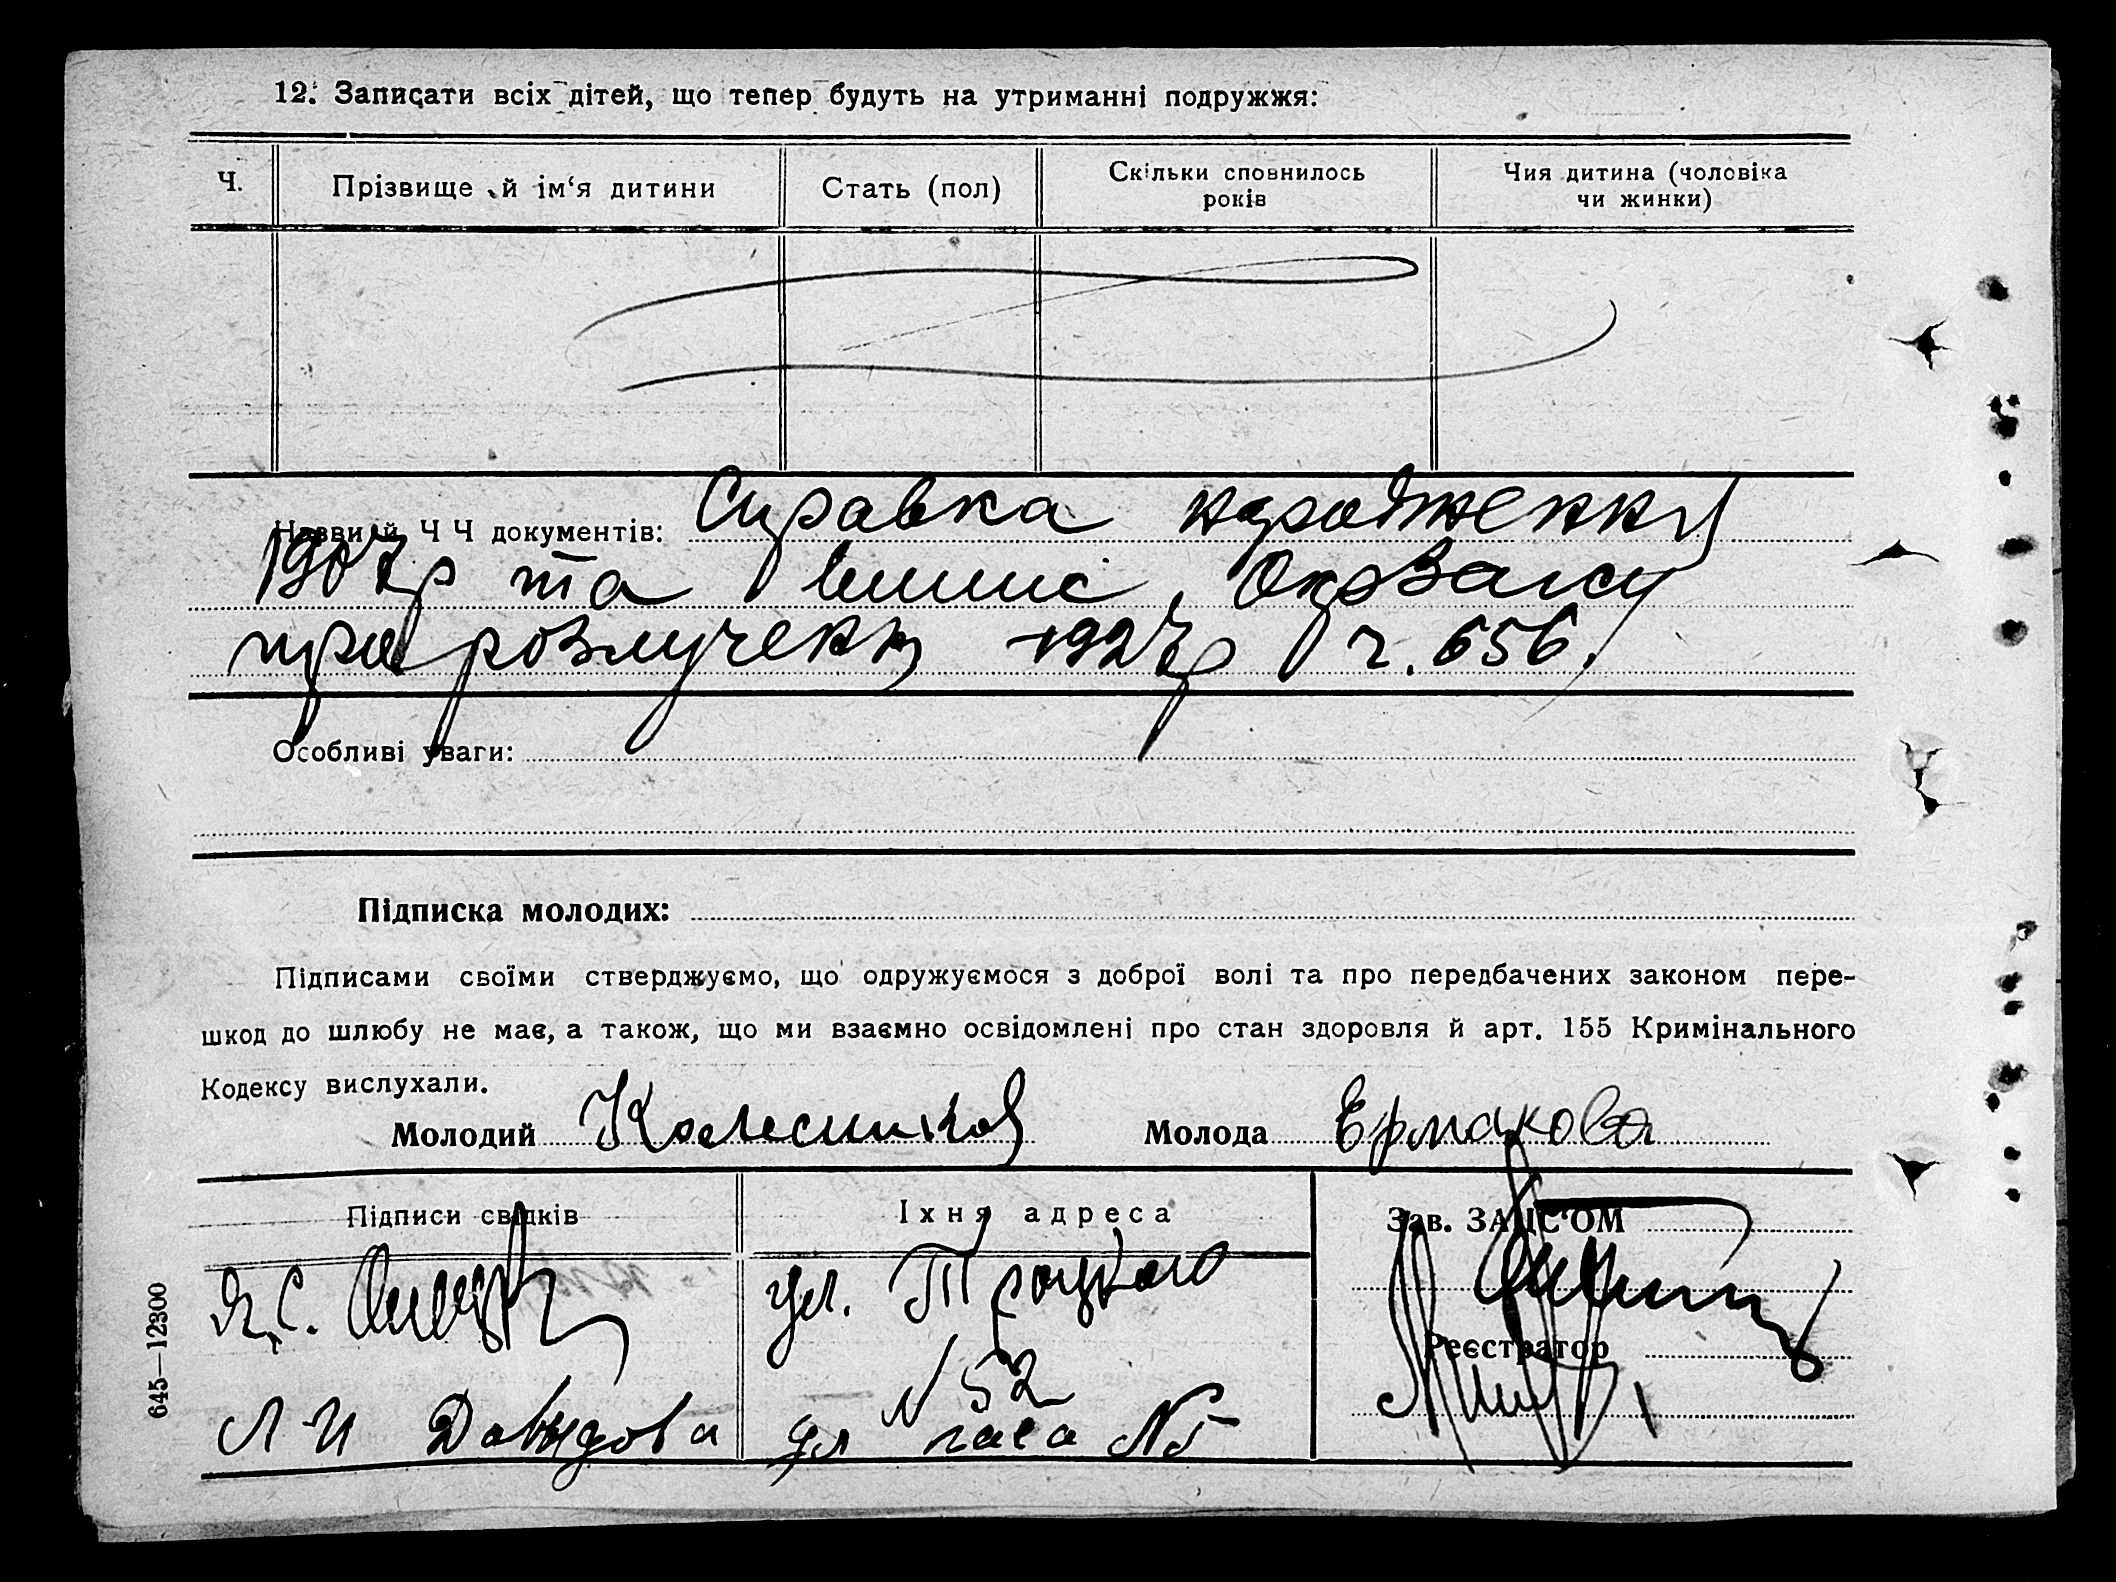 12. Записати всіх дітей, що тепер будуть на утриманні подружжя:
Ч.
Прізвище й ім‘я дитини
Стать (пол)
Скільки сповнилось років
Чия дитина (чоловіка чи жинки)
Назви й Ч Ч документів: Справка народження
1907р та випис
про розлучення 1927р ч. 656.
Особливі уваги:
Підписка молодих:
Підписами своїми стверджуємо, що одружуємося з доброї волі та про передбачених законом пере-
шкод до шлюбу не має, а також, що ми взаємно освідомлені про стан здоровля й арт. 155 Кримінального
Кодексу вислухали.
Молодий Колесников Молода Ермакова
Підписи свідків
Їхня адреса
Зав. ЗАЦС‘ОМ
Я.С.
ул. Троцкого
N 52
Реєстратор
Л И Давыдова
ул
645—12300